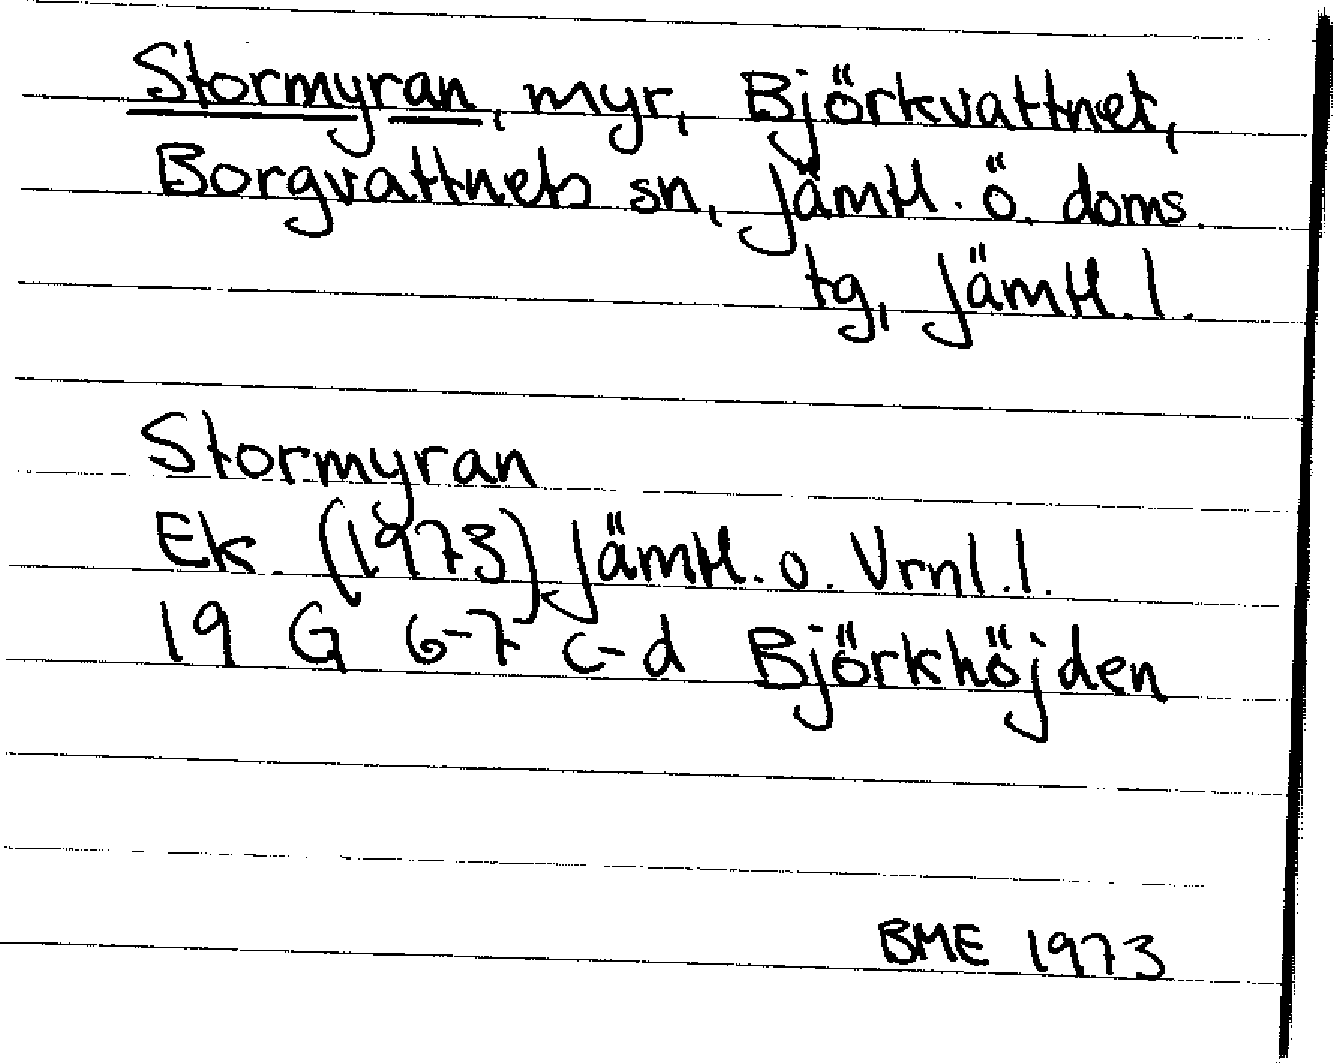 Stormyran, myr, Björkvattnet,
Borgvattnets sn, Jämtl. ö. doms.
tg, Jämtl. l.
Stormyran
Ek. (1973), Jämtl. o. Vrnl. l.
19 G 6-7 c-d Björkhöjden
BME 1973